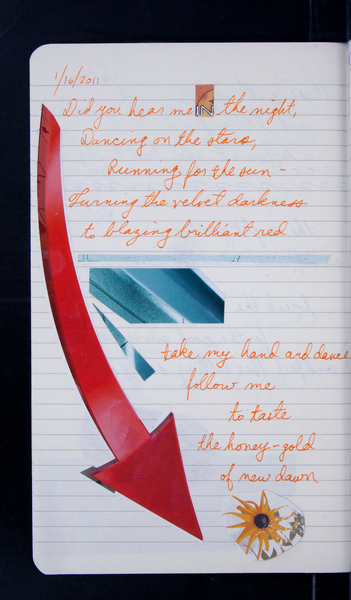 1/16/2011
Did you hear me IN the night,
Dancing on the stars,
Running for the sun -
Turning the velvet darkness
to blazing brilliant red
take my hand and dance
follow me
to taste
the honey-gold
of new dawn